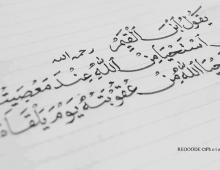 يَقُولُ ابْنُ الْقَيِّمْ رحمه الله
اسْتَحْيَا مِنْ اللَّهِ عِنْدَ مَعْصِيَتِ
اللَّهُ مِنْ عُقُوبَتِهُ يَوْمَ يَلْقَاهُ
REDCODE